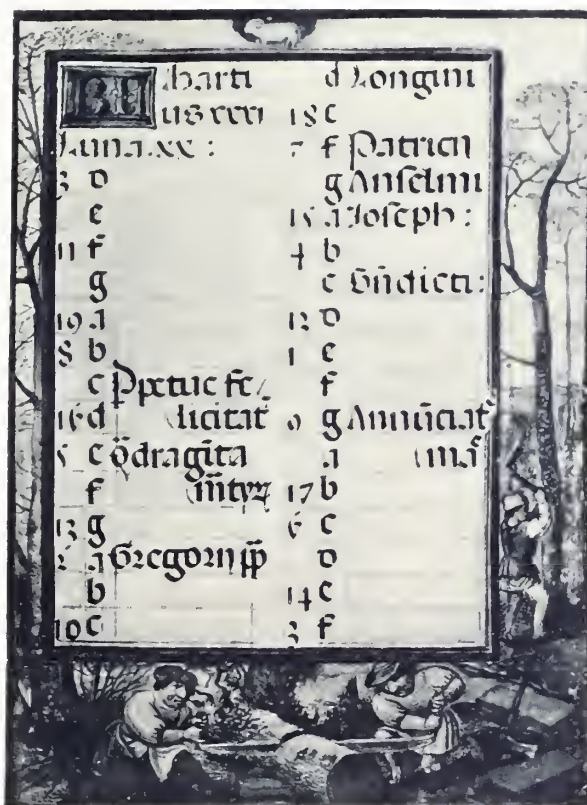 Marti
us xxxi
Luna.xx:
3 d
e
11 f
g
19 a
8 b
c Ppetue fe
16 d licitat
5 e Qdragīta
f m̄tyꝝ
13 g
2 a Gregorii pp̄
b
10 c
d Longini
18 e
7 f Patricii
g Anselmi
15 a Joseph:
4 b
c Bn̄dicti:
12 d
1 e
f
9 g Annūciat
a ma
17 b
6 c
d
14 e
3 f